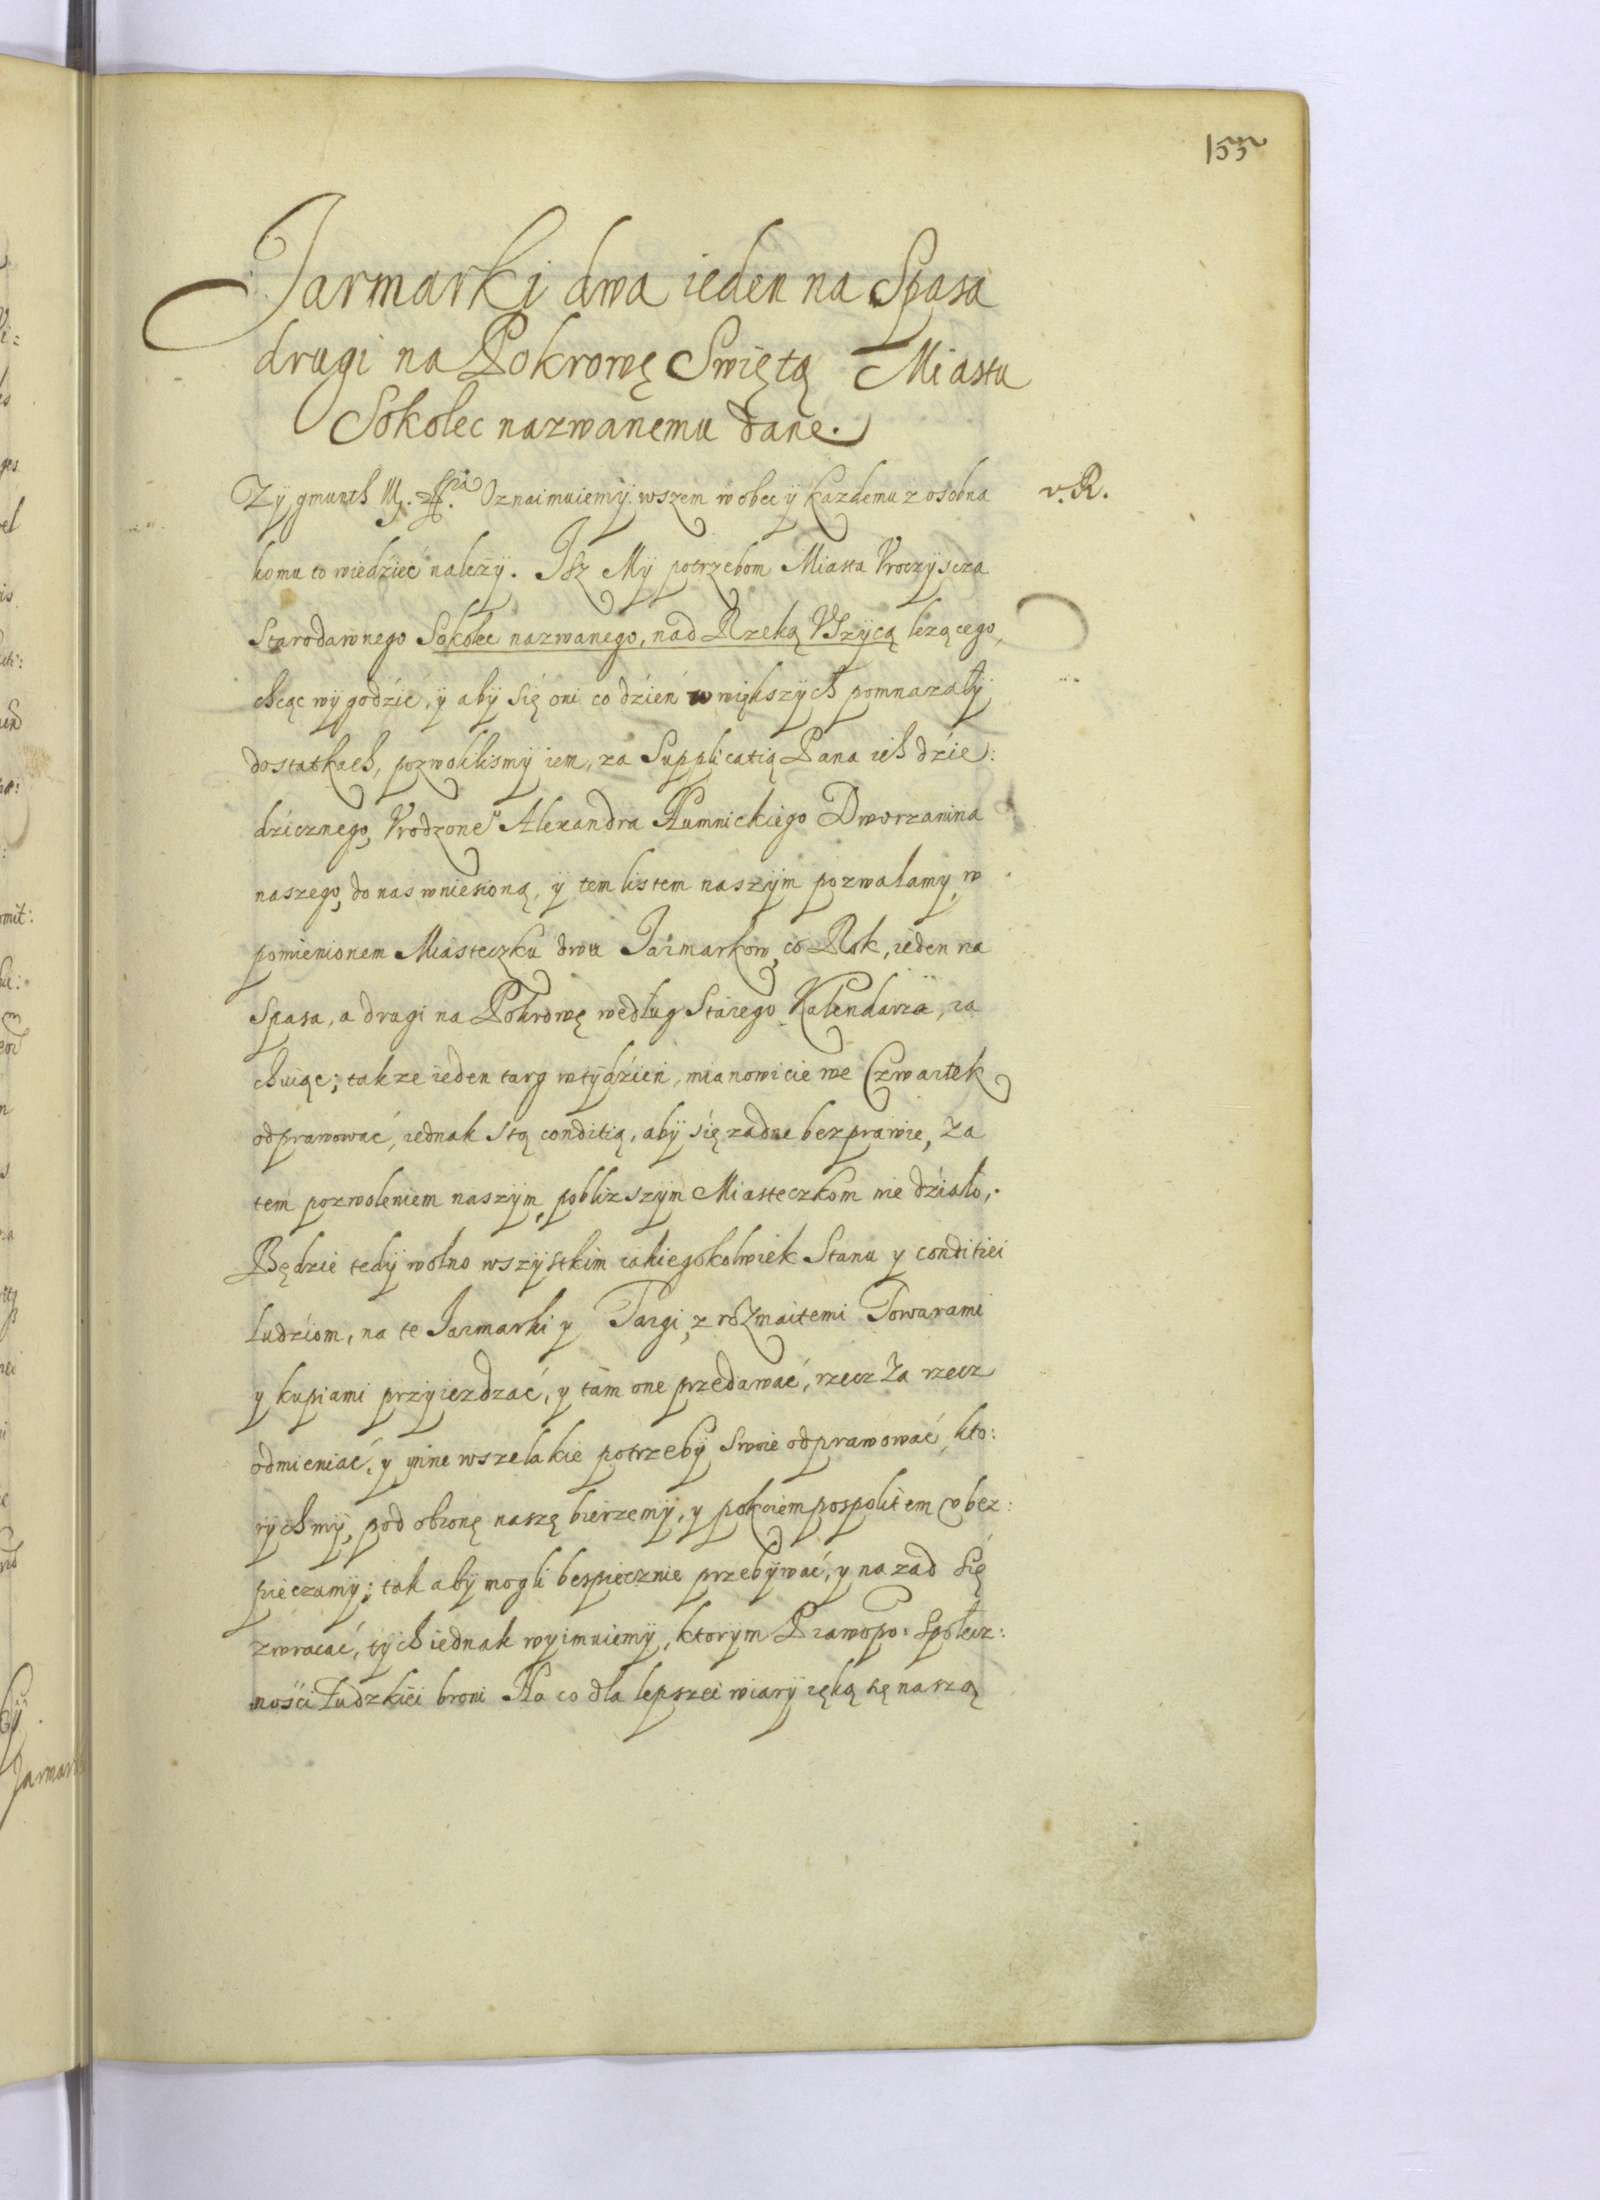 155
Jarmarki dwa ieden na Spasa
drugi na Pokrowę Swiętą Miastu
Sokolec nazwanemu dane.
Zÿgmunth III. Oznaimuiemÿ wszem wobec ÿ kazdemu z osobna
v. R.
komu to wiedzieć nalezÿ. Isz Mÿ potrzebom Miasta Vroczÿscza
Starodawnego Sokolec nazwanego, nad Rzeką Vszÿcą lezącego,
chcąc wÿgodzić, ÿ abÿ się oni co dzień w większÿch pomnazałÿ
dostatkach, pozwolilismÿ iem, za Supplicatią Pana ich dzie:
dzicznego, Vrodzone° Alexandra Humnickiego Dworzanina
naszego, do nas wniesioną, ÿ tem listem naszÿm pozwalamy, w
pomienionem Miasteczku dwu Jarmarkow, co Rok, ieden na
Spasa, a drugi na Pokrowę według Starego Kalendarza, ra
chuiąc; takze ieden targ w tÿdzień, mianowicie we Czwartek
odprawować, iednak s tą conditią, abÿ się zadne bezprawie, za
tem pozwoleniem naszÿm, pobliz szÿm Miasteczkom nie działo,
Będzie tedÿ wolno wszÿstkim iakiegokolwiek Stanu y conditiei
ludziom, na te Jarmarki y Targi, z rozmaitemi Towarami
y kupiami przÿiezdzać, y tam one przedawać, rzecz za rzecz
odmieniać, y inne wszelakie potrzebÿ swoie odprawować, kto:
rÿch mÿ, pod obronę naszę bierzemÿ, y pokoiem pospolitem vbez:
pieczamÿ; tak abÿ mogli bespiecznie przebÿwać, y nazad się
zwracać, tÿch iednak wyimuiemÿ, ktorym Prawo po: społecz:
ności ludzkiei broni Na co dla lepszei wiarÿ ręką się naszą